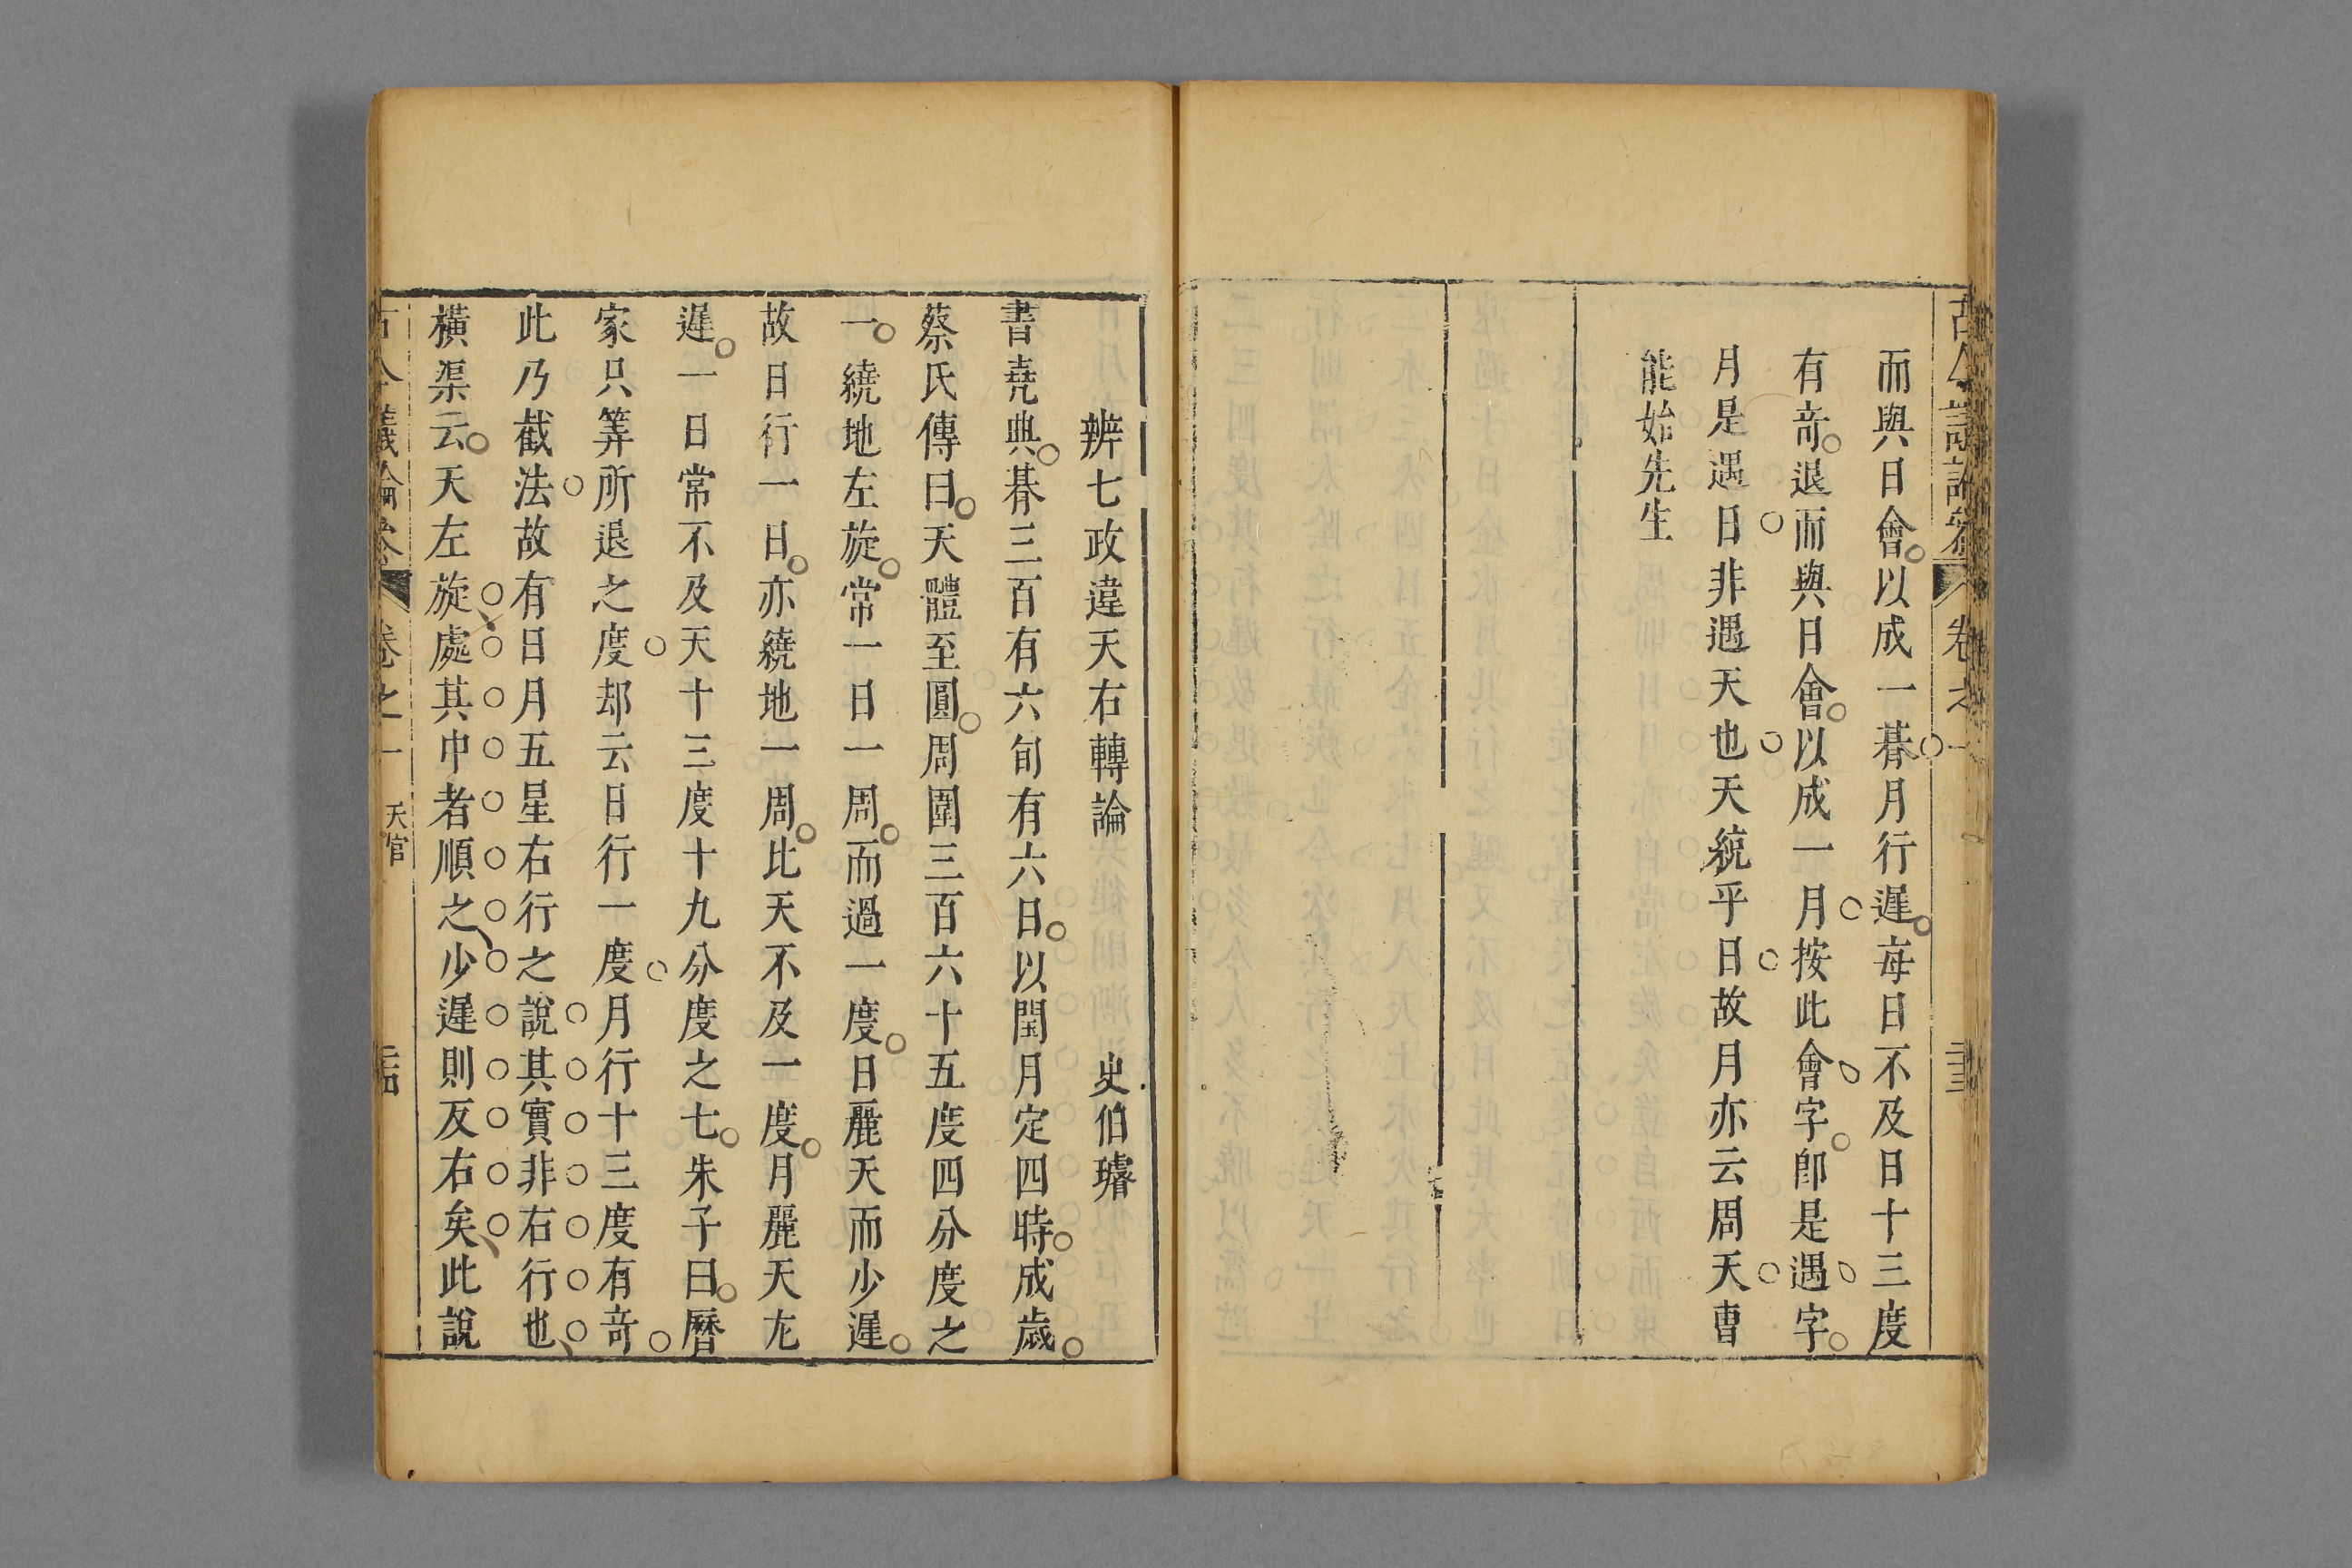 古今議論參 卷之一
而與日會以成一朞月行遲每日不及日十三度
有竒退而與日會以成一月按此會字卽是遇字
月是遇日非遇天也天統乎日故月亦云周天曹
能始先生
辨七政違天右轉論 史伯璿
書堯典朞三百有六旬有六日以閏月定四時成歲
蔡氏傳曰天體至圓周圍三百六十五度四分度之
一繞地左旋常一日一周而過一度日麗天而少遲
故日行一日亦繞地一周比天不及一度月麗天尤
遲一日常不及天十三度十九分度之七朱子曰曆
家只筭所退之度却云日行一度月行十三度有竒
此乃截法故有日月五星右行之說其實非右行也
橫渠云天左旋處其中者順之少遲則反右矣此說
古今議論參 卷之一 天官